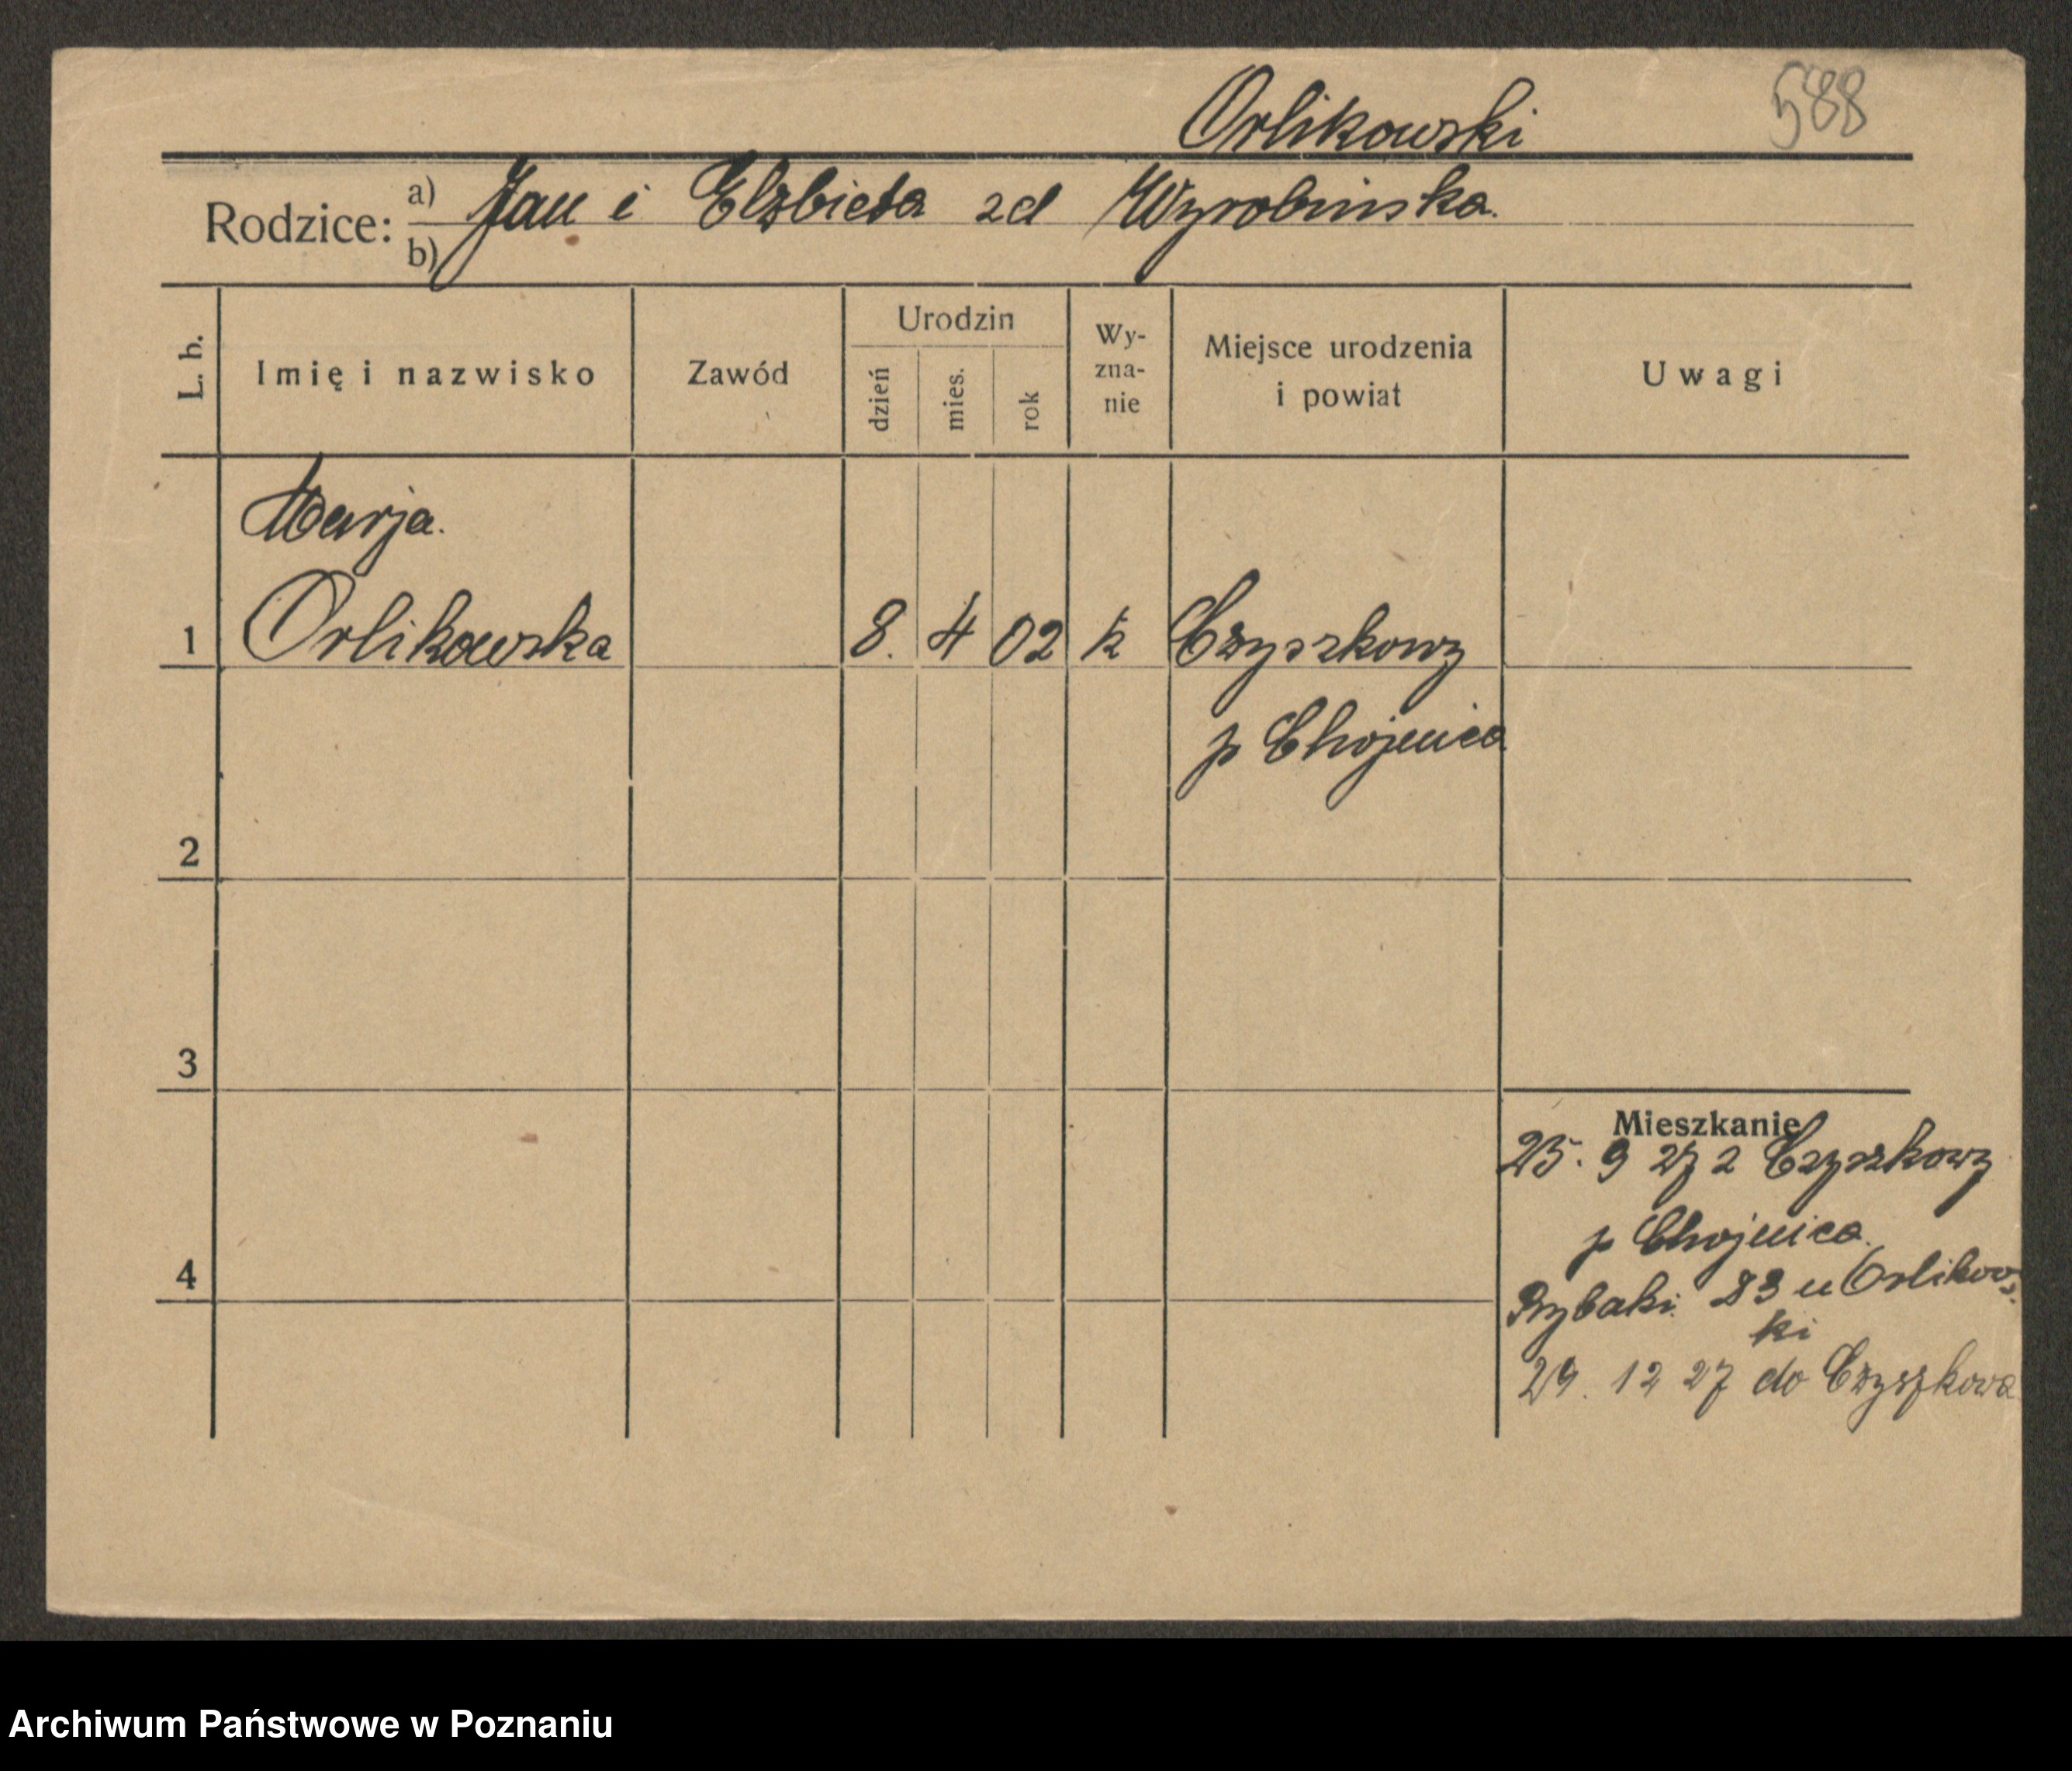 588
Orlikowski
Rodzice: a) Jan i Elzbieta zd Wyrobinska.
b)
L. b.
Imię i nazwisko
Zawód
Urodzin
dzień
mies.
rok
Wy-
zna-
nie
Miejsce urodzenia
i powiat
Uwagi
Marja.
1 Orlikowska 8. 4 02 k Czyszkowy
p Chojnica
2
3
Mieszkanie
25. 9 27 z Czyszkowy
p Chojnica.
4
Rybaki 23 u Orlikows
ki
29. 12 27 do Czyszkowa
Archiwum Państwowe w Poznaniu